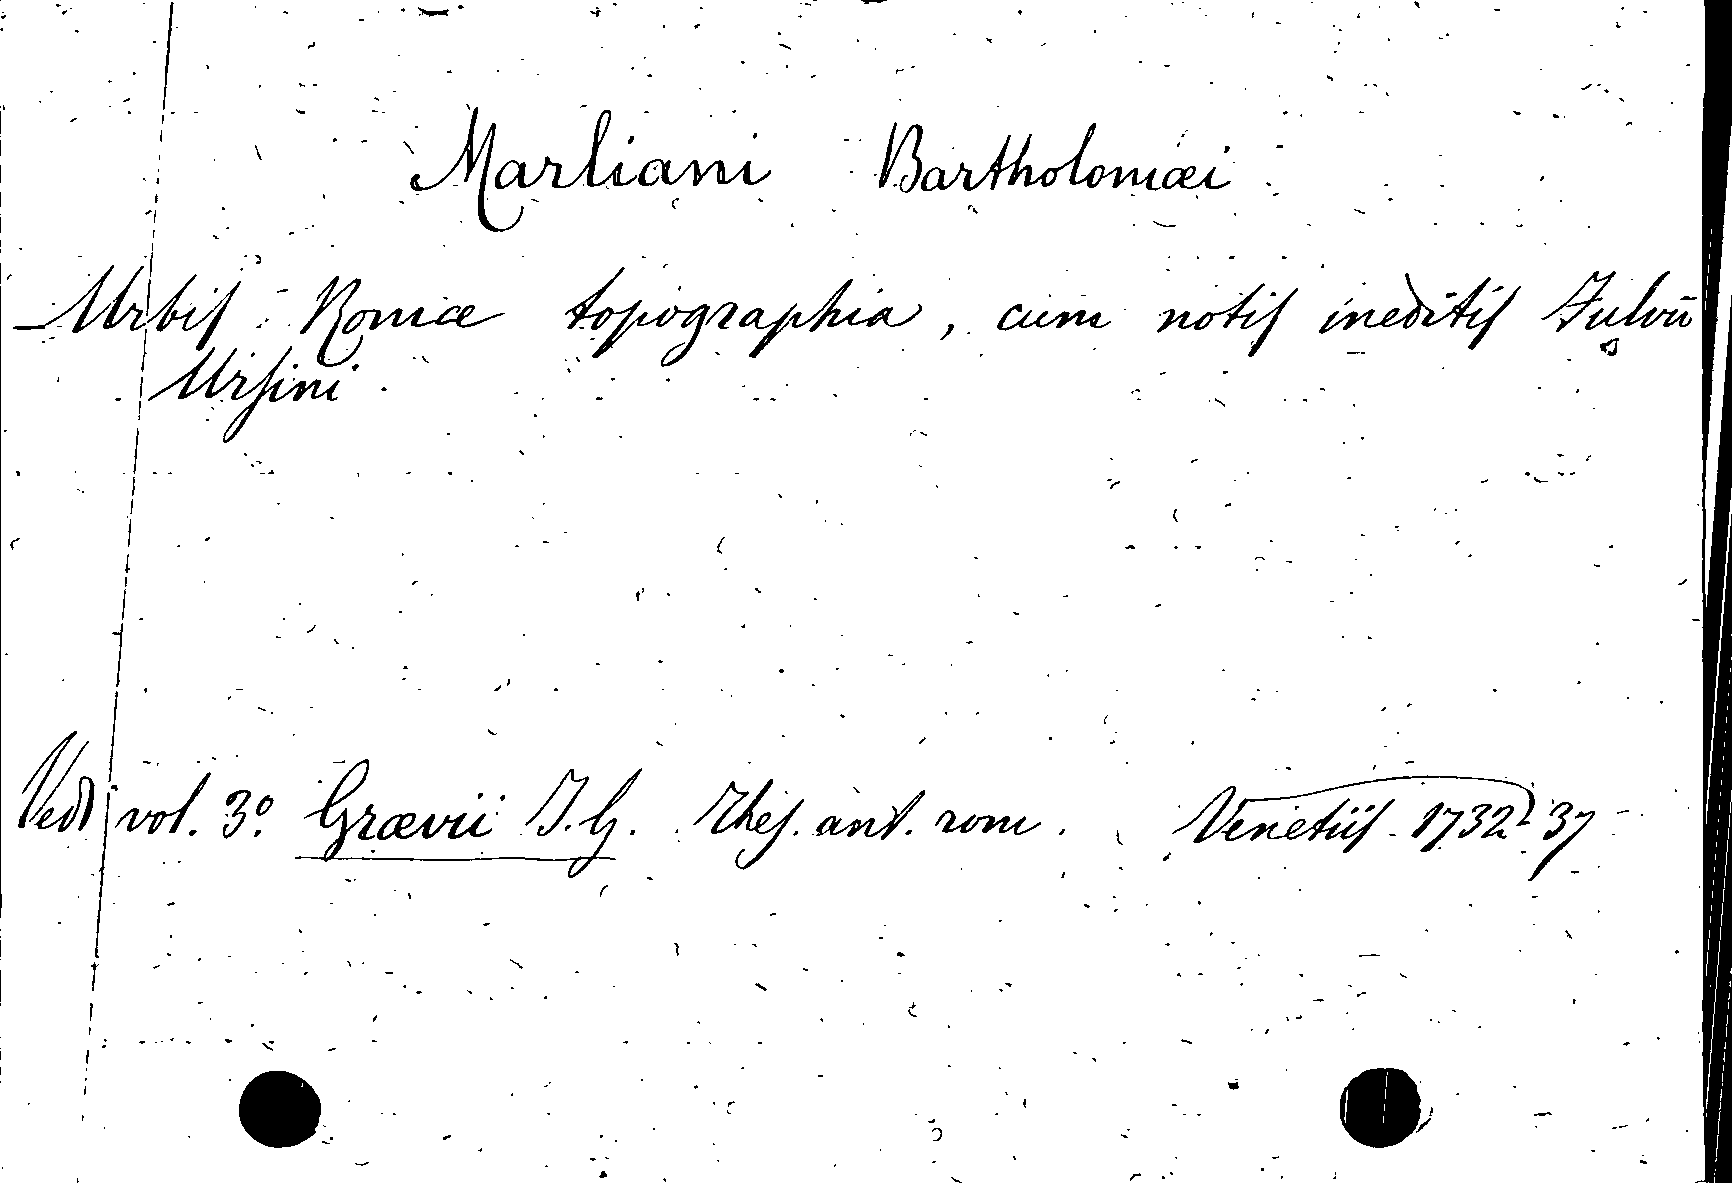 Marliani Bartholomæi
Urbis Romæ topographia, cum notis ineditis Fulvii
Ursini
Vedi vol. 3º. Grævii I. G. Thes. ant. rom. Venetiis 1732-37